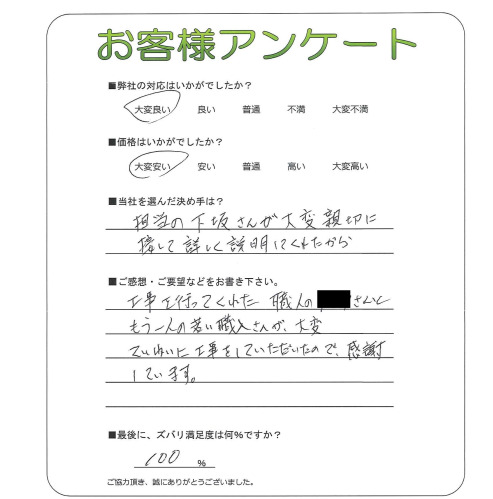 お客様アンケート
■弊社の対応はいかがでしたか？
大変良い 良い 普通 不満 大変不満
■価格はいかがでしたか？
大変安い 安い 普通 高い 大変高い
■当社を選んだ決め手は？
担当の下坂さんが大変親切に
接して詳しく説明してくれたから
■ご感想・ご要望などをお書き下さい。
工事を行ってくれた 職人の さんと
もう一人の若い職人さんが、大変
ていねいに工事をしていただいたので、感謝
しています。
■最後に、ズバリ満足度は何％ですか？
100 %
ご協力頂き、誠にありがとうございました。